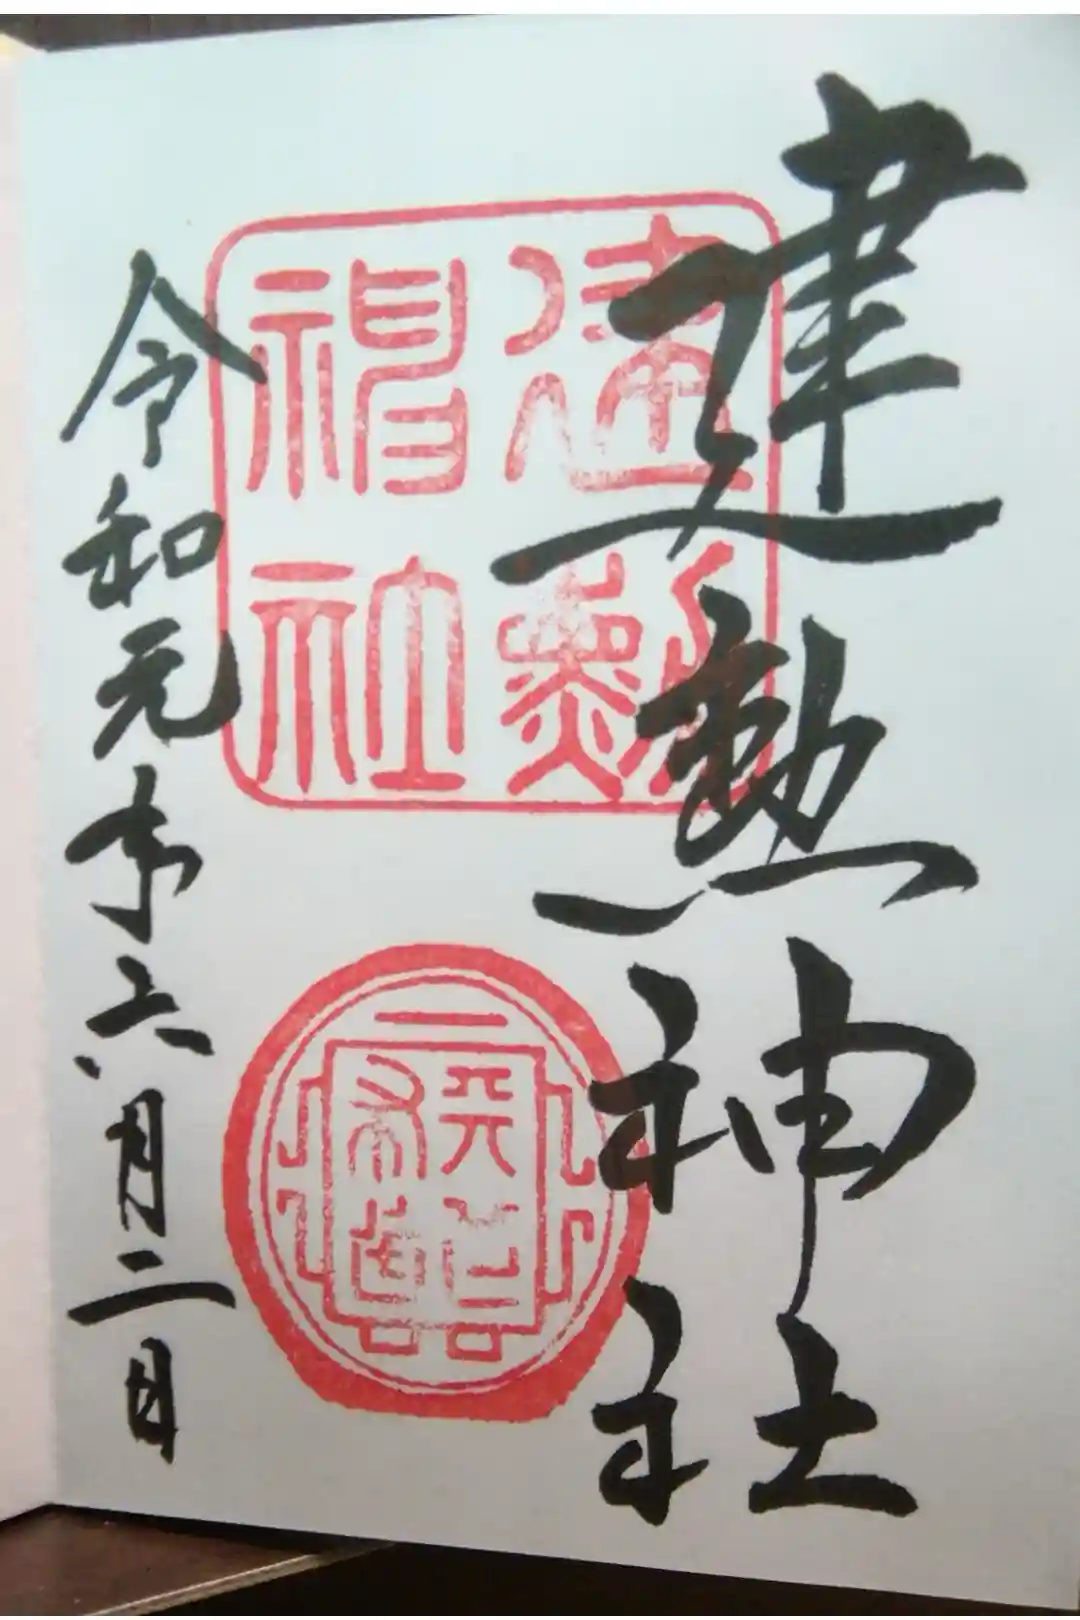 建勲神社
建勲
神社
令和元年六月二日